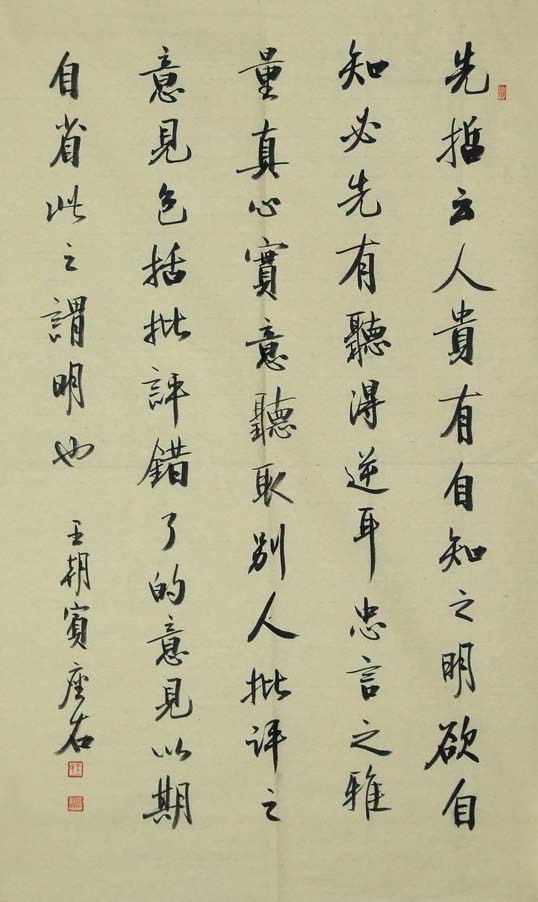 先哲云人貴有自知之明欲自
知必先有聽得逆耳忠言之雅
量真心實意聽取别人批評之
意見包括批評錯了的意見以期
自省此之謂明也
王朝賓座右